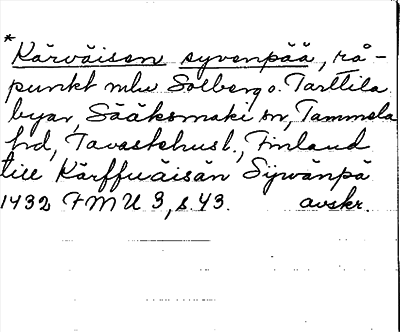 *
Kärväisen syvenpää, rå-
punkt mlu Solberg o. Tarttila
byar, Sääksmäki sn, Tammela
hd, Tavastehusl., Finland
till Kärffuäisän Sÿwänpä
1432 FMU 3, s. 43. avskr.